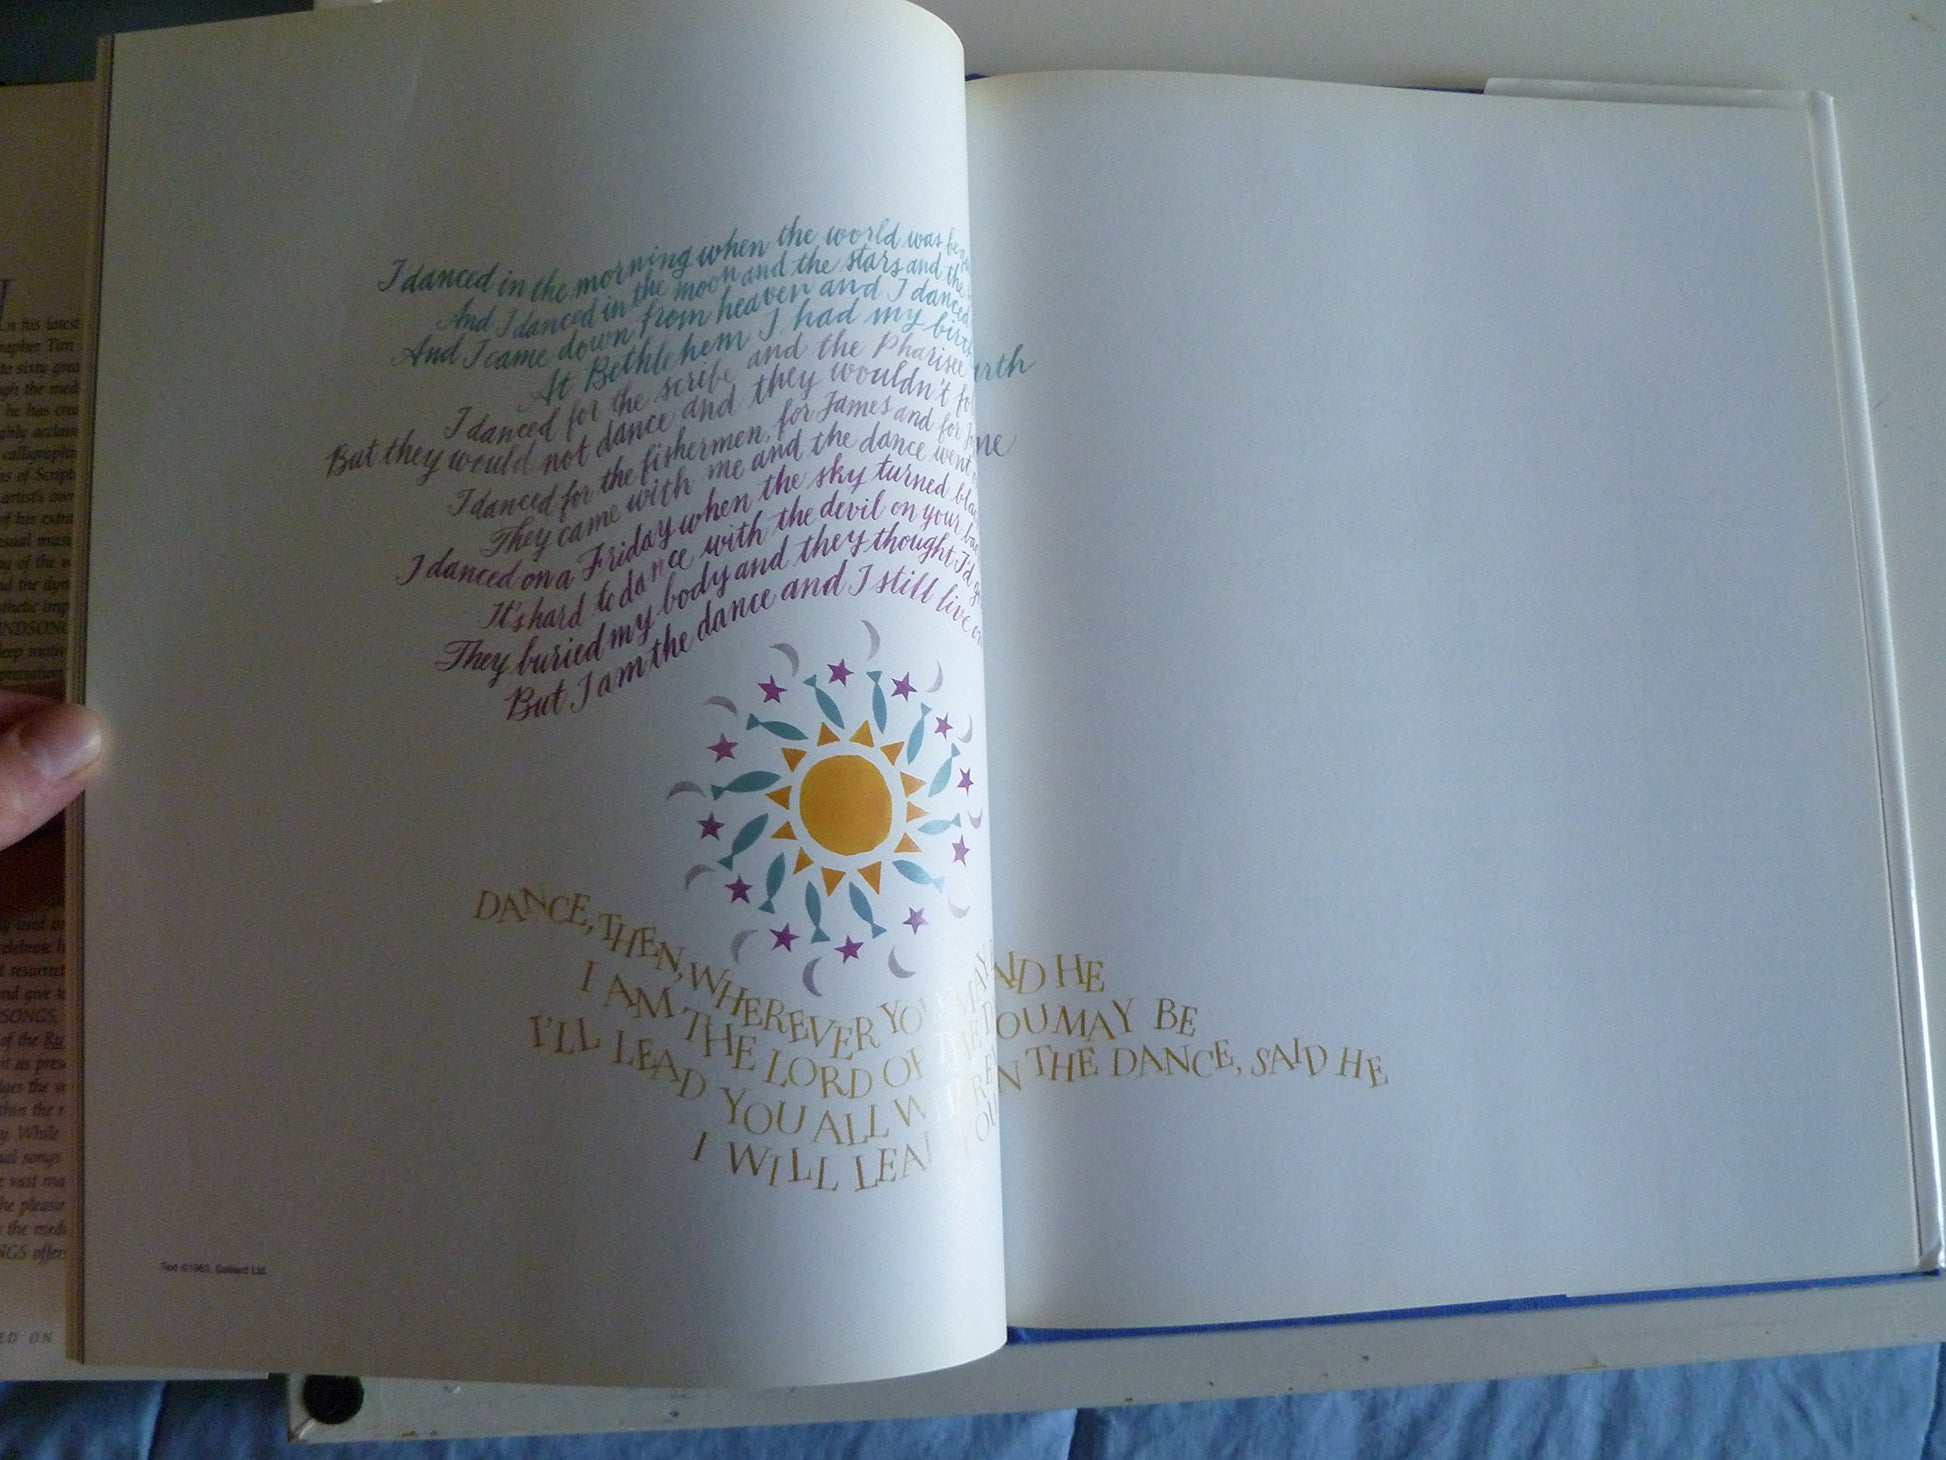 I danced in the morning when the world was
And I danced in the moon and the stars and the
And I came down from heaven and I danced
At Bethlehem I had my birth
earth
I danced for the scribe and the Pharisee
But they would not dance and they wouldn't
me
I danced for the fishermen, for James and for
They came with me and the dance went
I danced on a Friday when the sky turned
It's hard to dance with the devil on your
They buried my body and they thought I'd
But I am the dance and I still live
DANCE, THEN, WHEREVER YOU MAY
AID HE
I AM THE LORD OF THE
OU MAY BE
I'LL LEAD YOU ALL
N THE DANCE, SAID HE
I WILL LEAD YOU
Text ©1963, Galliard Ltd.
In his latest
rapher Tim
to sixty grea
ugh the med
he has crea
ghly acclaim
calligraphi
ns of Script
artist's own
of his extra
sual mus
ng of the w
nd the dyn
sthetic imp
INDSONG
deep motiv
rpretation
ly used in
celebrate h
f resurrect
and give te
SONGS,
of the Ru
it as pres
dges the w
thin the r
y. While
al songs
e vast ma
he pleasur
the medi
NGS offer
ED ON